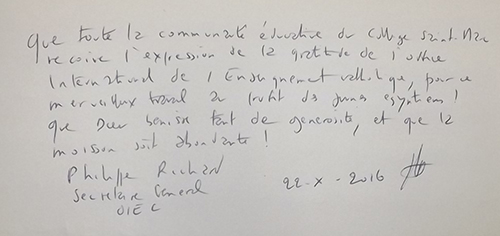 Que toute la communauté éducative du Collège Saint-Marc
reçoive l'expression de la gratitude de l'Office
International de l'Enseignement catholique, pour ce
merveilleux travail au profit des jeunes egyptiens !
que Dieu benisse tant de generosité, et que la
moisson soit abondante !
Philippe Richard
Secretaire General
OIEC
22 - X - 2016